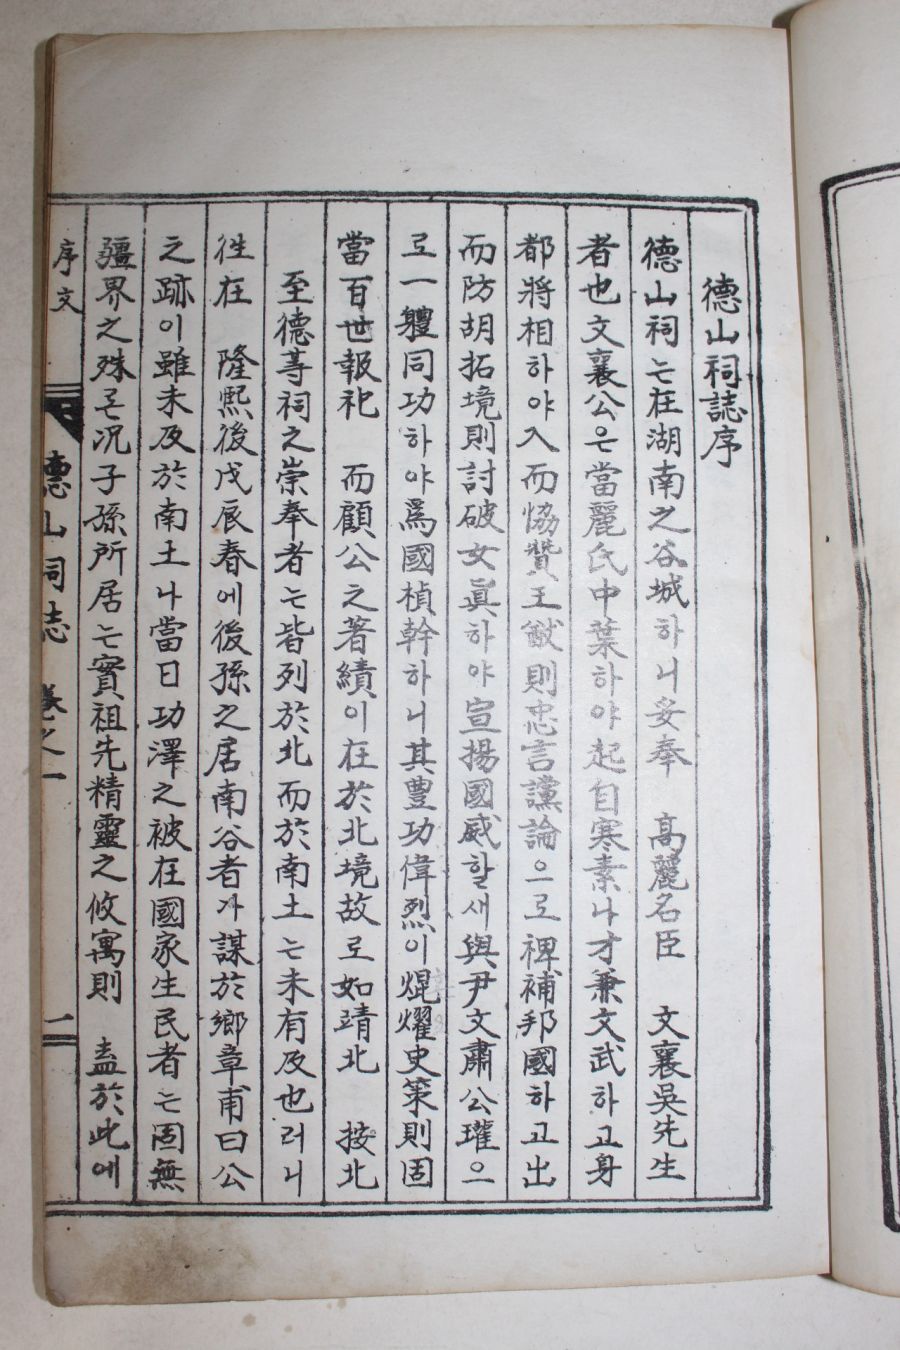 德山祠誌序
德山祠는在湖南之谷城하니妥奉 高麗名臣 文襄吳先生
者也文襄公은當麗氏中葉하야起自寒素나才兼文武하고身
都將相하야入而恊贊王猷則忠言讜論으로裨補邦國하고出
而防胡拓境則討破女眞하야宣揚國威할새與尹文肅公瓘으
로一軆同功하야爲國楨幹하니其豊功偉烈이焜燿史策則固
當百世報祀 而顧公之著績이在於北境故로如靖北 按北
至德等祠之崇奉者는皆列於北而於南土는未有及也러니
徃在 隆熙後戊辰春에後孫之居南谷者가謀於鄕章甫曰公
之跡이雖未及於南土나當日功澤之被在國家生民者는固無
疆界之殊온况子孫所居는實祖先精靈之攸寓則 盍於此에
序文
德山祠志 卷之一
一